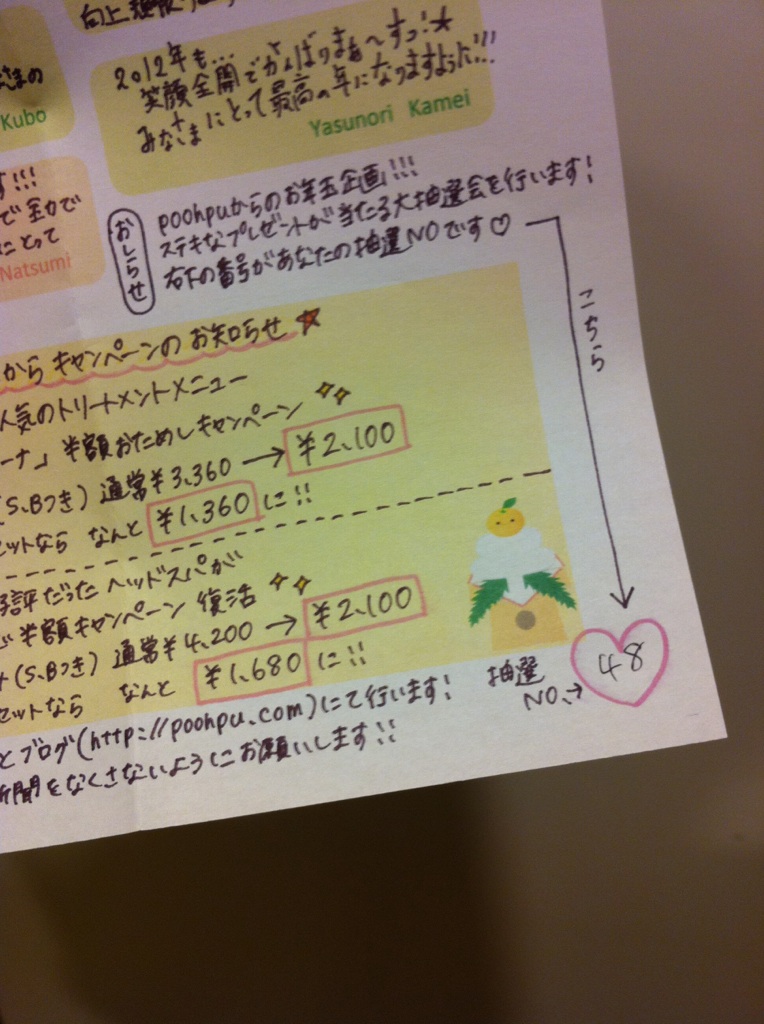 2012年も...
笑顔全開でがんばりまぁ〜すっ!★
みなさまにとって最高の年になりますように!!!
Yasunori Kamei
さまの
Kubo
す!!!
で全力で
にとって
Natsumi
おしらせ
poohpuからのお年玉企画!!!
ステキなプレゼントが当たる大抽選会を行います!
右下の番号があなたの抽選NOです♡
こちら
からキャンペーンのお知らせ★
人気のトリートメントメニュー
ーナ」半額おためしキャンペーン
(S、Bつき) 通常¥3,360→¥2,100
セットなら なんと ¥1,360に!!
好評だったヘッドスパが
半額キャンペーン 復活
(S、Bつき) 通常¥4,200→¥2,100
セットなら なんと ¥1,680に!!
とブログ(http://poohpu.com)にて行います!
新聞をなくさないようにお願いします!!
抽選
NO.→
48